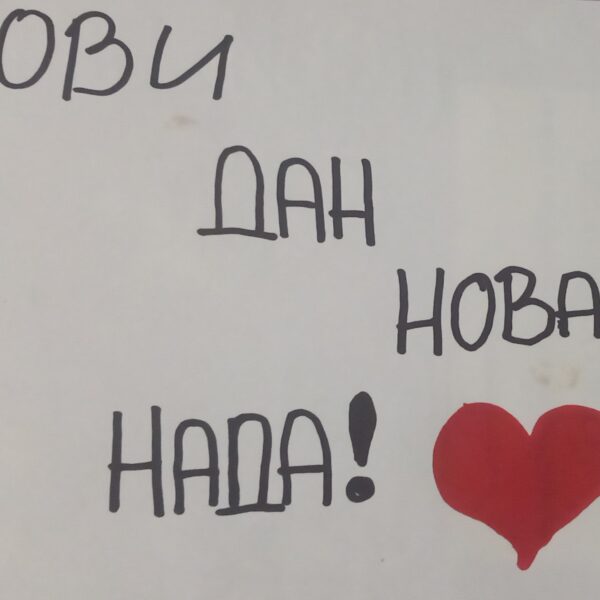 ОВИ
ДАН
НОВА
НАДА!